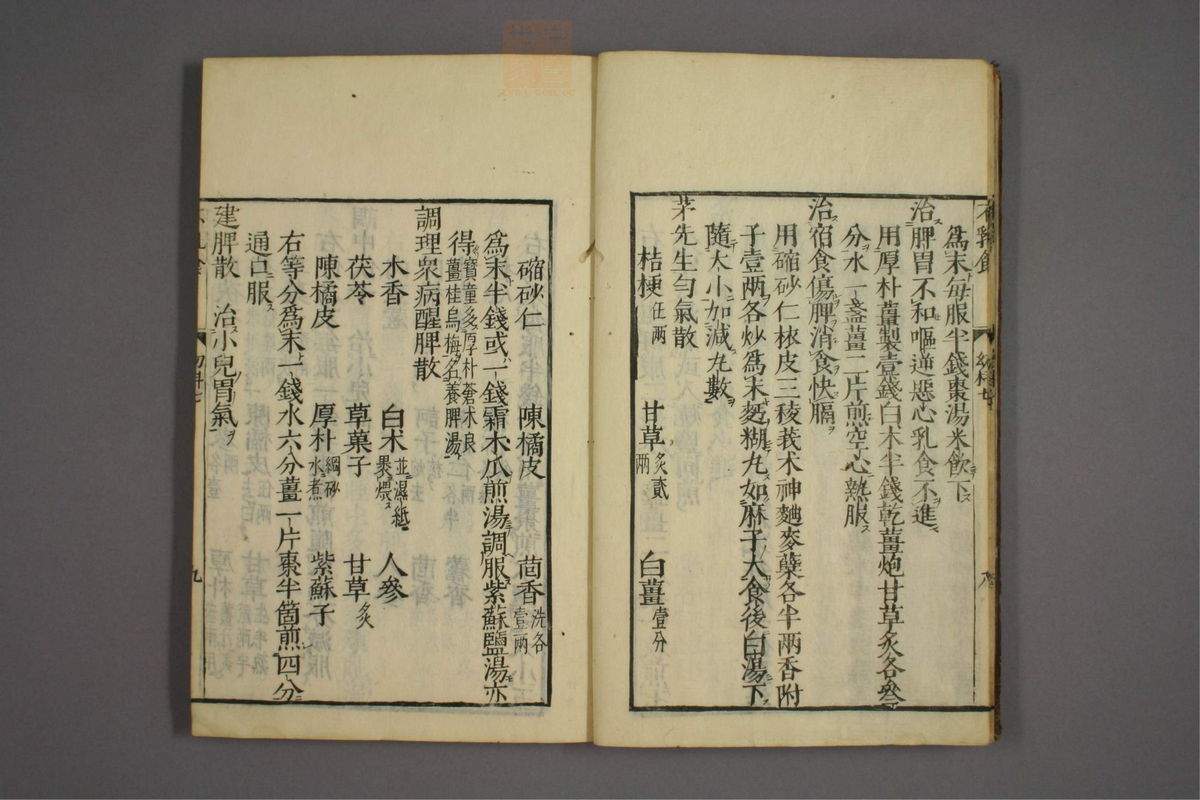 爲末毎服半錢棗湯米飮下
治脾胃不和嘔逆惡心乳食不進
用厚朴薑製壹錢白术半錢乾薑炮甘草炙各叄
分水一盞薑二片煎空心熱服
治宿食傷脾消食快膈
用縮砂仁栐皮三稜莪术神麯麥蘖各半兩香附
子壹兩各炒爲末麪糊丸如麻子大食後白湯下
隨大小加減丸數
茅先生勻氣散
桔梗 伍兩 甘草 炙貳兩 白薑 壹分
縮砂仁 陳橘皮 茴香 洗各壹兩
爲末半錢或一錢霜木瓜煎湯調服紫蘇鹽湯亦
得 寶童多厚朴蒼术良薑桂烏梅名養脾湯
調理衆病醒脾散
木香 白术 並濕紙裹煨 人參
茯苓 草菓子 甘草 炙
陳橘皮 厚朴 綱砂水煮 紫蘇子
右等分爲末一錢水六分薑一片棗半箇煎四分
通口服
建脾散 治小兒胃氣
不乳食 幼科七 九